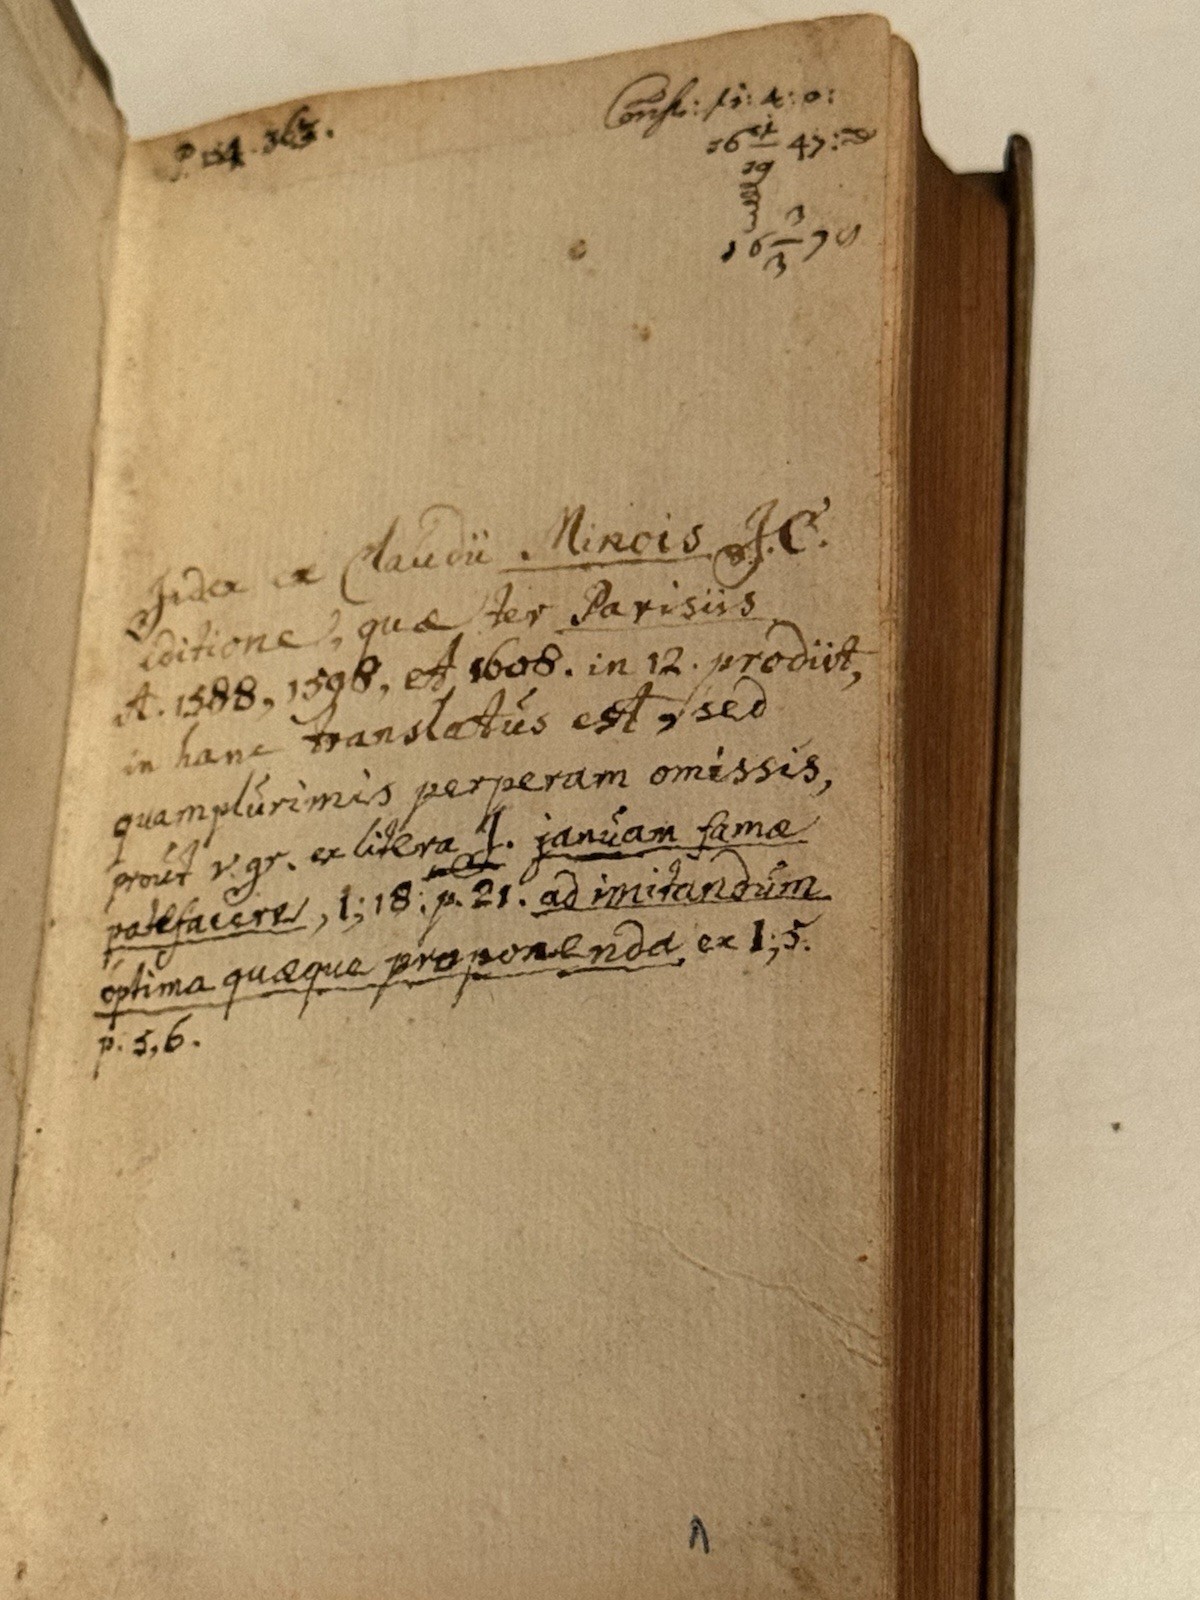 Const: f1: 4: 0:
Index ex Claudii Minois J.C.
editione, quæ ter Parisiis
A. 1588, 1598, et 1608. in 12. prodiit,
in hanc translatus est, sed
quamplurimis perperam omissis,
prout v. gr. ex litera J. januam famæ
patefacere, 1; 18; p. 21. ad imitandum
optima quæque proponenda ex 1; 5.
p. 5, 6.